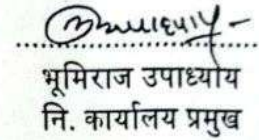 भूमिराज उपाध्याय
नि. कार्यालय प्रमुख